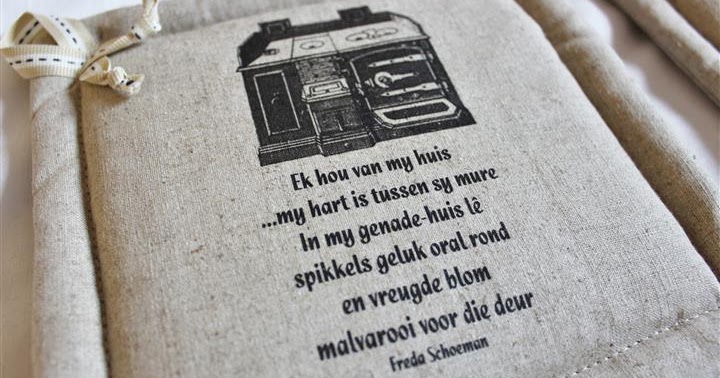 Ek hou van my huis
...my hart is tussen sy mure
In my genade-huis lê
spikkels geluk oral rond
en vreugde blom
malvarooi voor die deur
Freda Schoeman